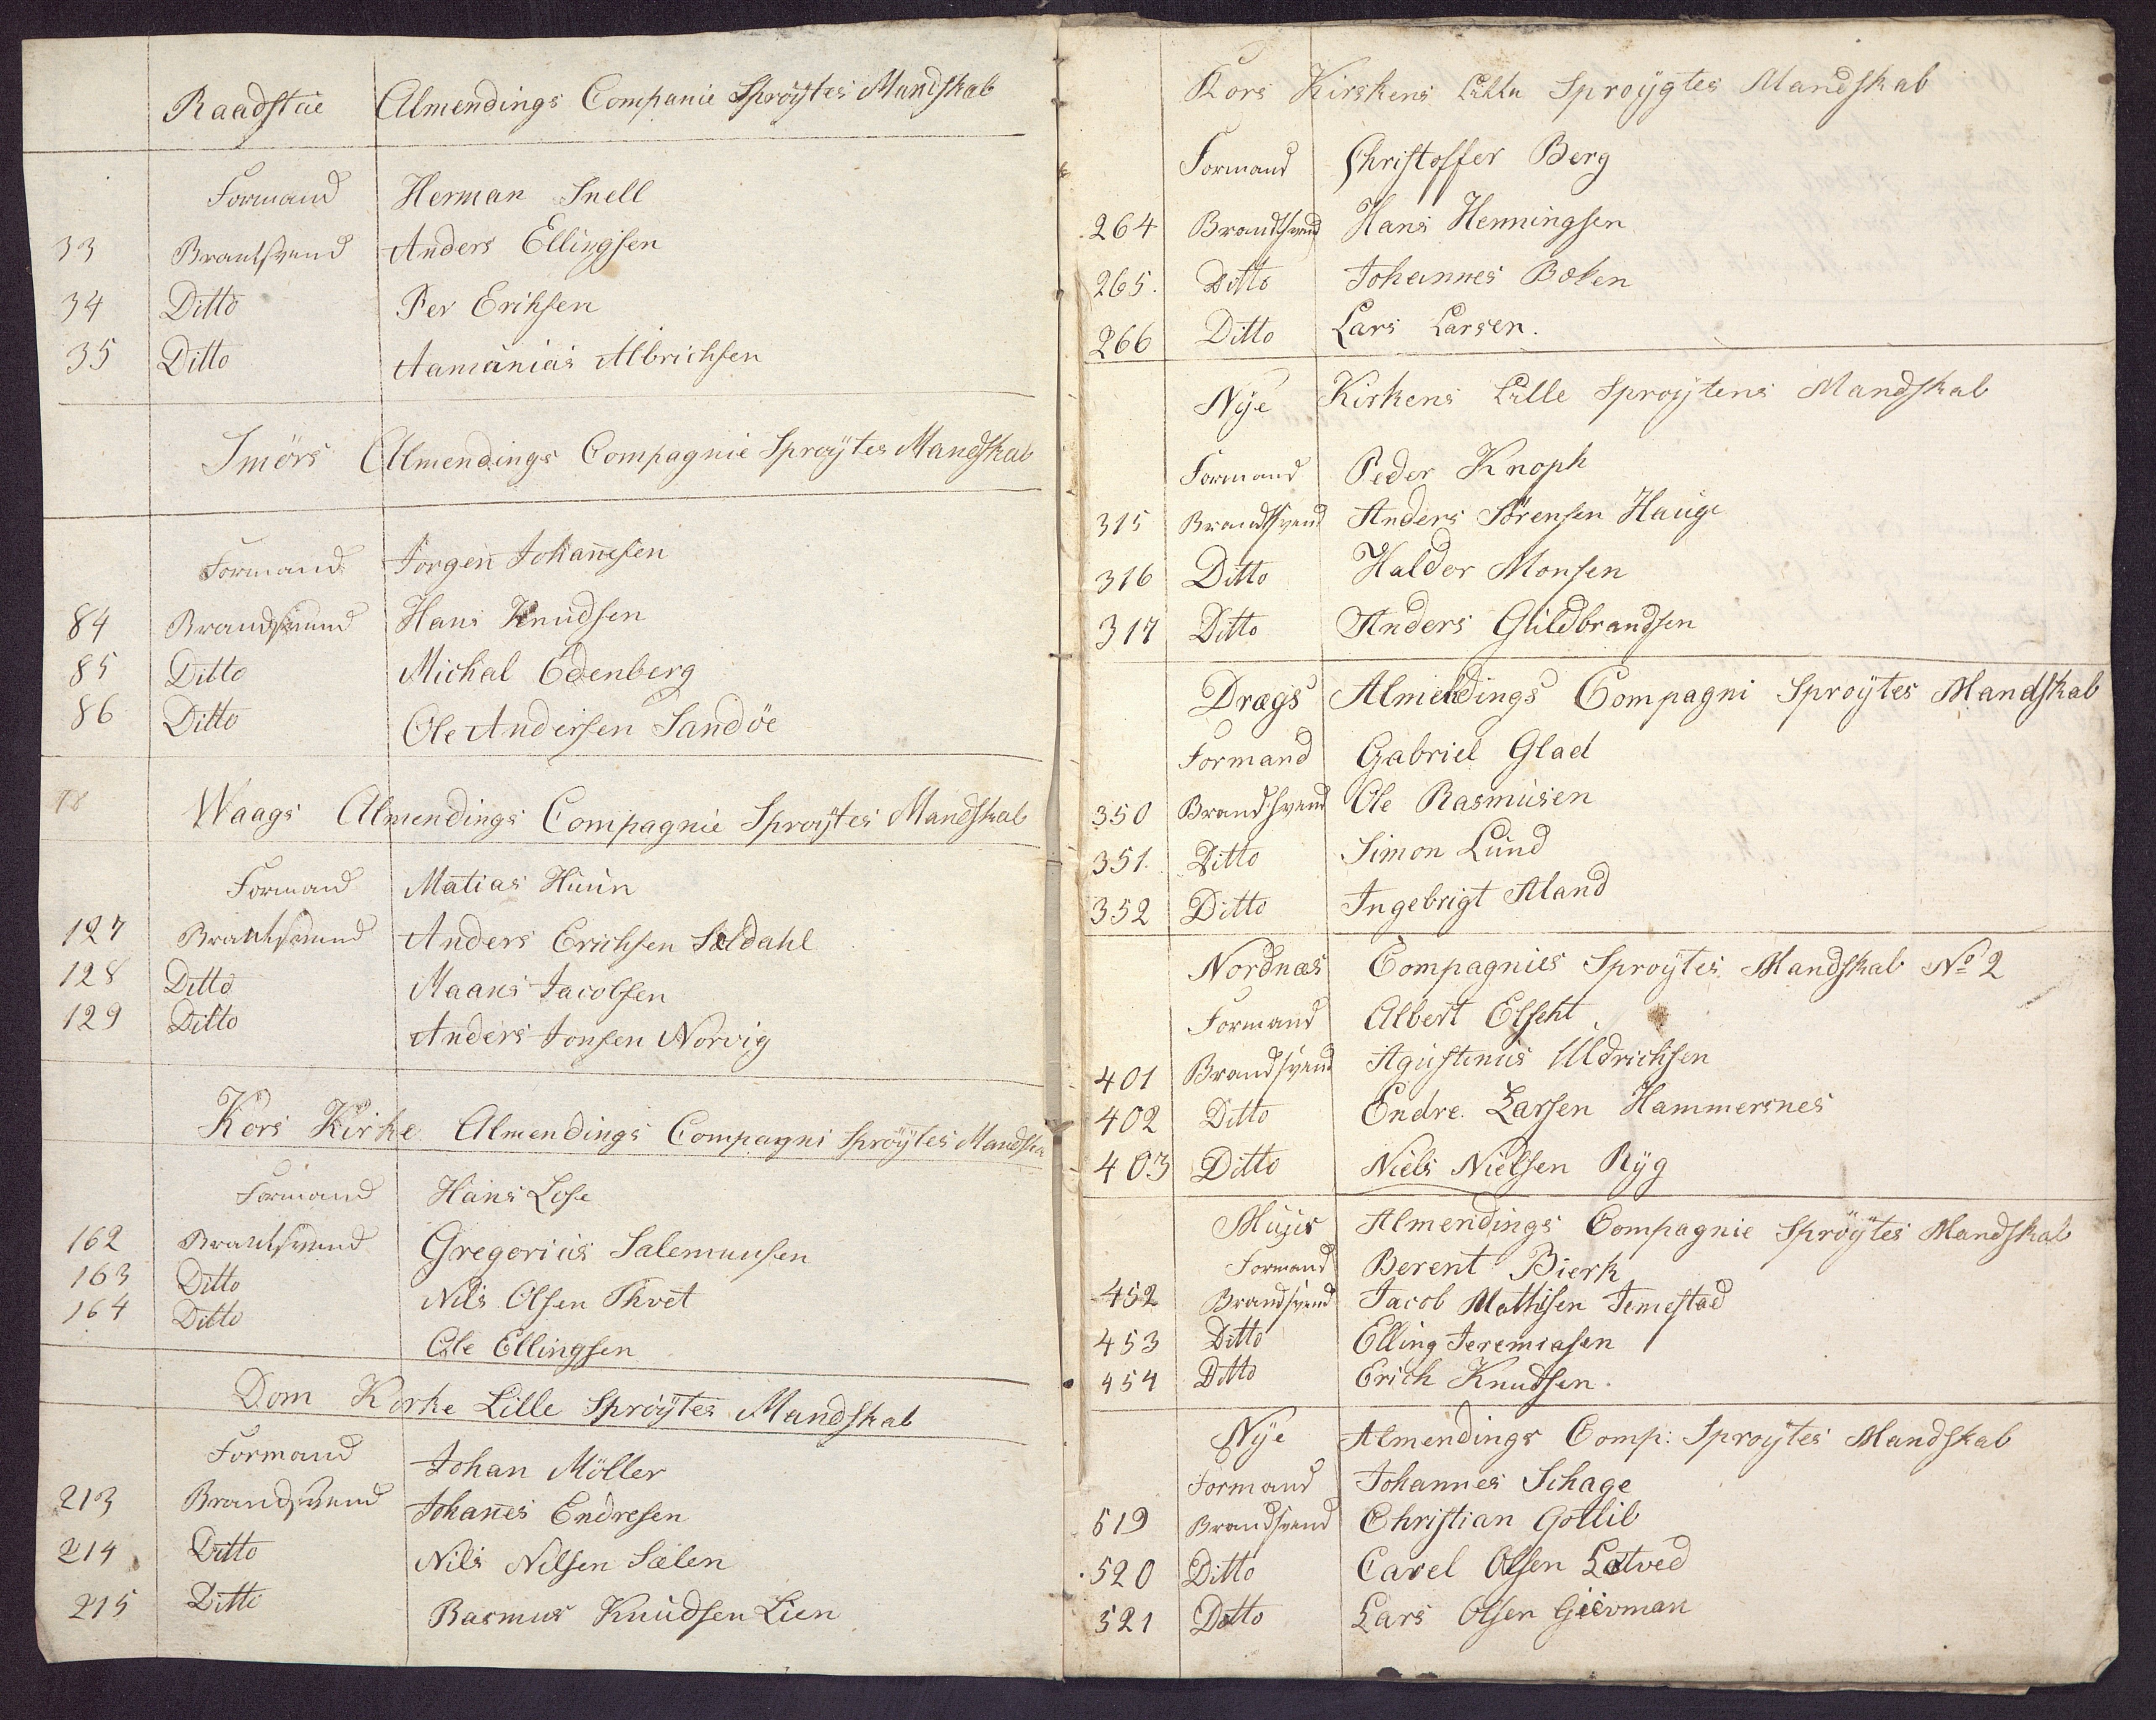 Raadstue Almendings Companie Sprøÿtes Mandskab
Formand Herman Snell
33 Brantsvend Anders Ellingsen
34 Ditto Per Erichsen
35 Ditto Aamanias Albrichsen
Smørs Almendings Compagnie Sprøÿtes Mandskab
Formand Jørgen Johan̄esen
84 Brandsvend Hans Knudsen
85 Ditto Michal Edenberg
86 Ditto Ole Andersen Sandöe
Waags Almendings Compagnie Sprøÿtes Mandskab
Formand Matias Huun
127 Brantsvend Anders Erichsen Sældahl
128 Ditto Maans Jacobsen
129 Ditto Anders Jonsen Norvig
Kors Kirke Almendings Compagni Sprøÿtes Mandska
Formand Hans Lose
162 Brantsvend Gregorius Salemunsen
163 Ditto Nils Olsen Thvet
164 Ditto Ole Ellingsen
Dom Kirke Lille Sprøÿtes Mandskab
Formand Johan Möller
213 Brandsvend Johan̄es Endresen
214 Ditto Nils Nilsen Sælen
215 Ditto Rasmus Knudsen Lien
Kors Kirskens Sproÿgtes Mandskab
Formand Christoffer Berg
264 Brandtsvend Hans Henningsen
265. Ditto Johannes Boken
266 Ditto Lars Larsen.
Nÿe Kirkens Lille Sproÿtens Mandskab
Formand Peder Knoph
315 Brandtsvend Anders Sørensen Hauge
316 Ditto Haldor Monsen
317 Ditto Anders Guldbrandsen
Drægs Almeldings Compagni Sproÿtes Mandskab
Formand Gabriel Glad
350 Brandsvend Ole Rasmusen
351. Ditto Simon Lund
352 Ditto Ingebrigt Aland
Nordnæs Compagnies Sproÿtes Mandskab No 2
Formand Albert
401 Brandsvend Agustinus Uldrichsen
402 Ditto Endre Larsen Hammersnes
403 Ditto Niels Nielsen Rÿg
Mugs Almendings Compagnie Sprøÿtes Mandskab
Formand Berent Bierk
452 Brandsvend Jacob Mathisen Temestad
453 Ditto Elling Jeremiasen
454 Ditto Erich Knudsen.
Nÿe Almendings Comp: Sproÿtes Mandskab
Formand Johannes Schage
519 Brandsvend Christian Gotlib
520 Ditto Carel Olsen Lotved
521 Ditto Lars Olsen